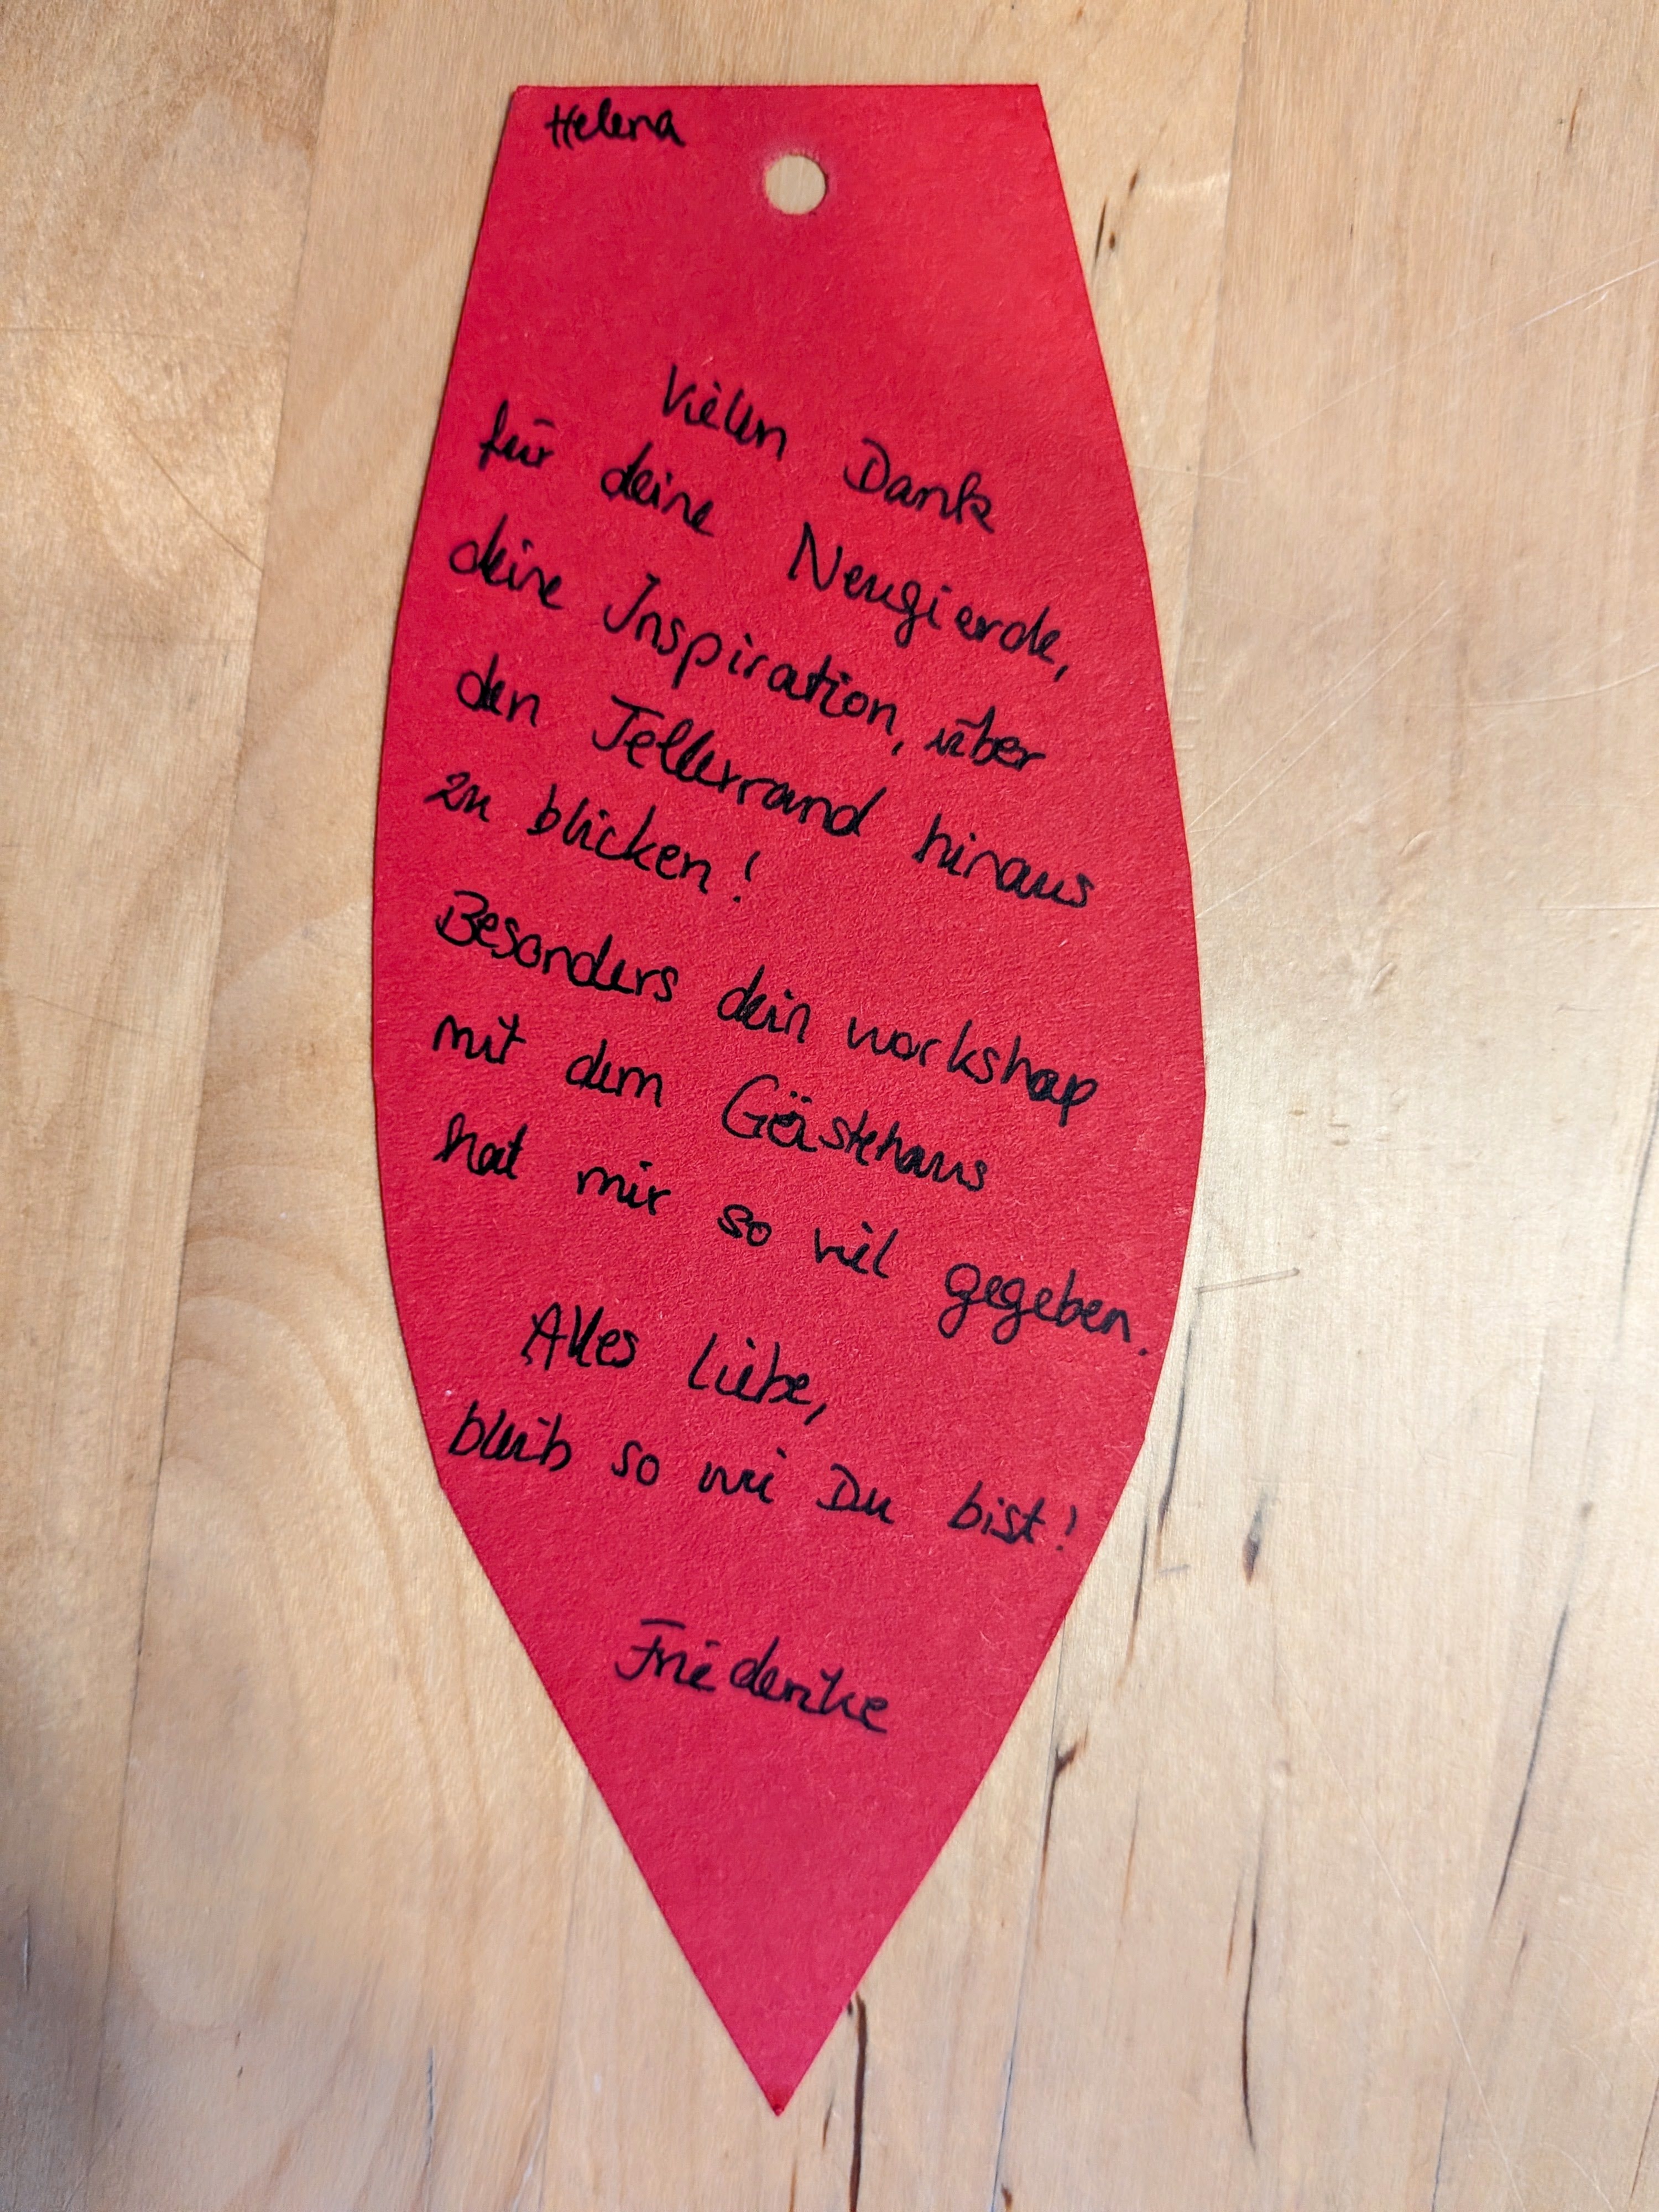 Helena
Vielen Dank
für deine Neugierde,
deine Inspiration, über
den Tellerrand hinaus
zu blicken!
Besonders dein workshop
mit dem Gästehaus
hat mir so viel gegeben.
Alles Liebe,
bleib so wie Du bist!
Friederike